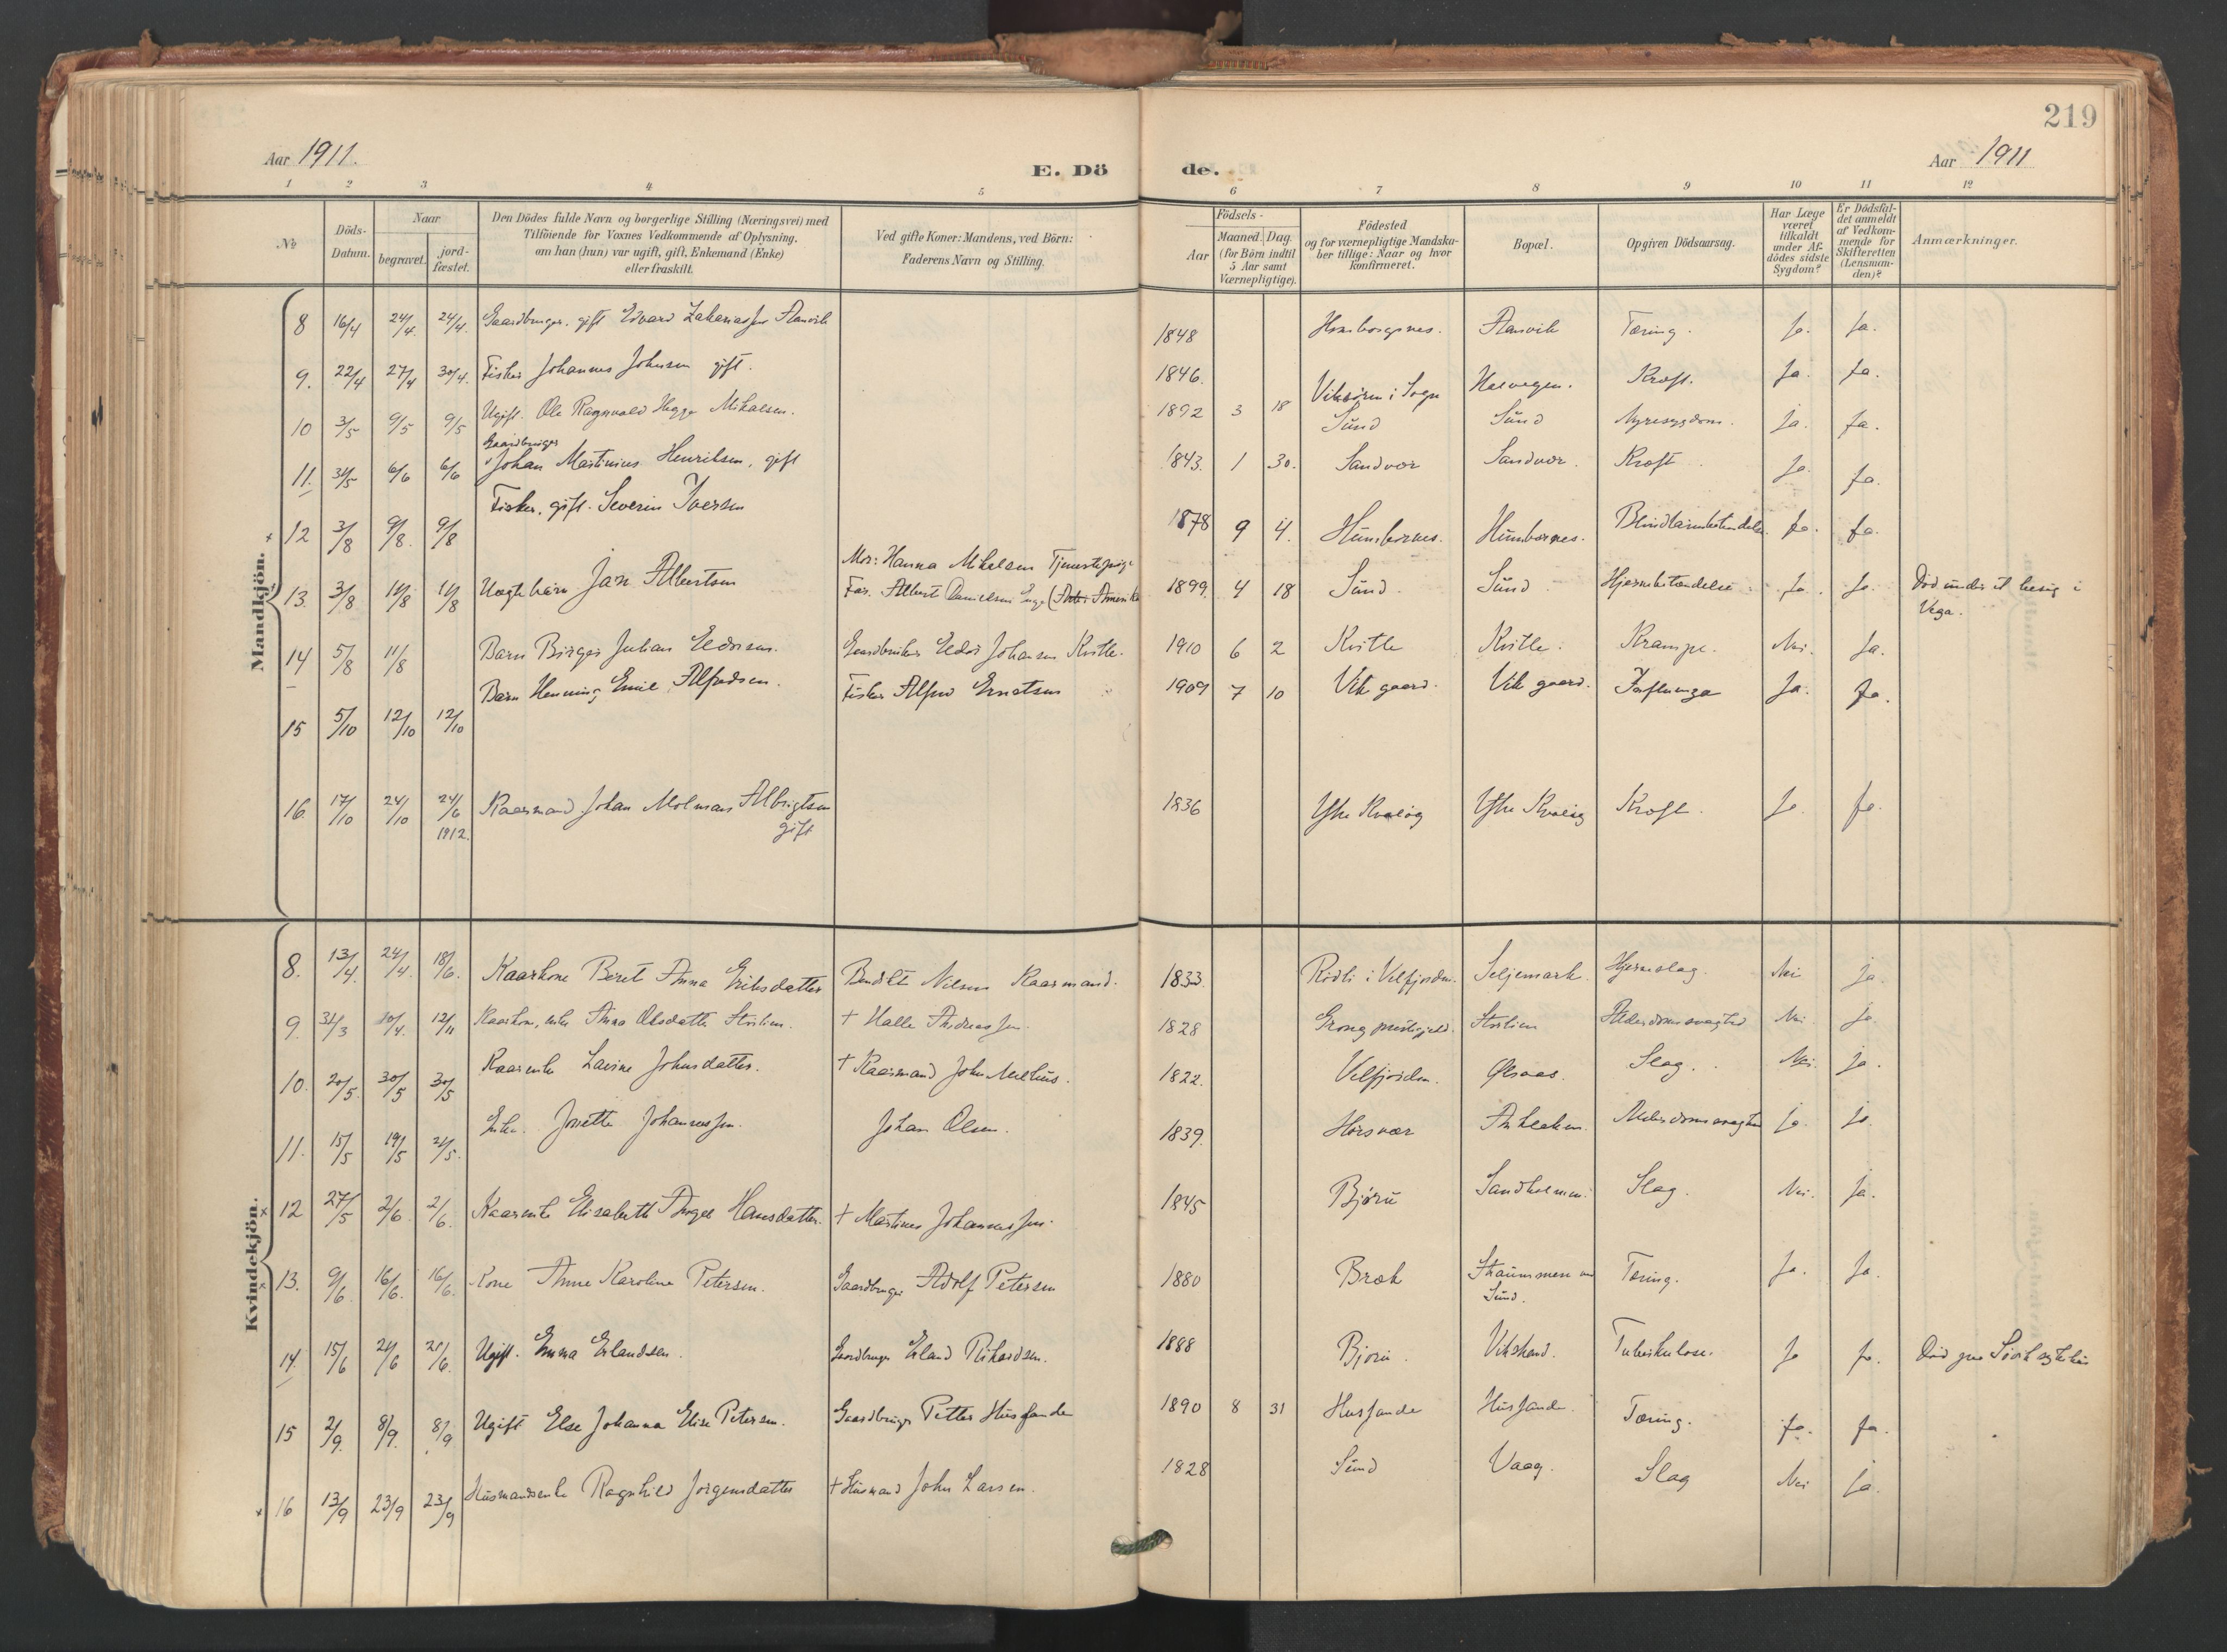 219
Aar 1911.
E. Dö
de.
Aar 1911
1 2 3 4 5 6 7 8 9 10 11 12
№
Döds-
Datum.
Naar
begravet.
jord-
fæstet.
Den Dödes fulde Navn og borgerlige Stilling (Næringsvei) med
Tilföiende for Voxnes Vedkommende af Oplysning,
om han (hun) var ugift, gift, Enkemand (Enke)
eller fraskilt.
Ved gifte Koner: Mandens, ved Börn:
Faderens Navn og Stilling.
Födsels-
Aar
Maaned. Dag.
(for Börn indtil
5 Aar samt
Værnepligtige).
Födested
og for værnepligtige Mandska-
ber tillige: Naar og hvor
konfirmeret.
Bopæl.
Opgiven Dödsaarsag.
Har Læge
været
tilkaldt
under Af-
dödes sidste
Sygdom?
Er Dödsfal-
det anmeldt
af Vedkom-
mende for
Skifteretten
(Lensman-
den)?
Anmærkninger.
Mandkjön.
8 16/4 24/4. 24/4. Gaardbruger. gift Edvard Zakariassen Aanvik 1848 Aanvik Tæring. Ja. Ja.
9. 22/4 27/4 30/4. Fisker Johannes Johnsen gift. 1846. Viksören i Sogn Kræft. Ja. Ja.
10 3/5 9/5 9/5 Ugift. Ole Ragnvald Hegge Mikalsen. 1892 3 18 Sund Sund Nyresygdom. Ja. Ja.
Gaardbruger
11. 31/5 6/6 6/6 Johan Martinius Henriksen, gift 1843. 1 30. Sandvær Sandvær. Kræft Ja. Ja.
12 3/8 9/8. 9/8 Fisker, gift. Severin Iversen 1878 9 4. Humbornes. Humbornes. Blindtarmbetændelse. Ja. Ja.
Mor: Hanna Mikalsen Tjenestepige
13. 3/8 11/8 11/8 Uægte barn Jan Albertsen Far. Albert Danielsen Enge Amerika 1899. 4 18 Sund. Sund Hjernebetændelse. Ja. Ja. Död under et besög i
Vega.
14 5/8 11/8 Barn Birger Julian Eldorsen. Gaardbruker Eldor Johansen Kvitle. 1910 6 2 Kvitle Kvitle. Krampe. Nei. Ja.
15 5/10 12/10 12/10 Barn Henning Emil Alfredsen. Fisker Alfred Ernstsen 1909 7 10 Vik gaard. Vik gaard. Influenza Ja. Ja.
16. 17/10 24/10 24/6 Kaarmand Johan Albrigtsen 1836 Ytre Kvalöy Ytre Kvalöy Kræft. Ja. Ja.
1912. gift
Kvindekjön.
8. 13/4. 24/4. 18/6. Kaarkone Beret Anna Eriksdatter Bendikt Nilsen Kaarmand. 1833. Rödli i Velfjorden. Seljemark. Hjerneslag. Nei ja.
9. 31/3 10/4. 12/11 Kaarkone, enke Anna Olsdatter Storlien. + Halle Andreassen. 1828 Grong præstegjeld. Storlien Alderdomssvaghed Nei. ja.
10. 20/5. 30/5 30/5 Kaarenke Lavine Johnsdatter. + Kaarmand John 1822. Velfjorden. Ölsaas. Slag. Nei. ja.
11. 15/5 19/5 21/5. Enke. Jonette Johannessen. Johan Olsen. 1839. Horsvær Alderdomssvaghed ja. ja.
12 27/5 2/6. 2/6. Kaarenke Elisabeth Hansdatter. + Martinus Johannessen. 1845 Björn Sandholmen. Slag. Nei. Ja.
13. 9/6. 16/6. 16/6. Kone Anne Karoline Petersen. Gaardbruger Adolf Petersen 1880 Bræk Straummen ved
Sund. Tæring. Ja. Ja.
14. 15/6 21/6 21/6. Ugift. Emma Erlandsen. Gaardbruger Erland Rikardsen. 1888 Björn. Vikstrand. Tuberkulose. Ja Ja. Död paa Sövik sykehus
15 2/9. 8/9. 8/9 Ugift Else Johanna Elise Petersen. Gaardbruger Petter Husfande 1890 8 31 Husfande Husfande. Tæring. Ja. Ja.
16 13/9 23/9 23/9 Husmandsenke Ragnhild Jörgensdatter + Husmand John Larsen. 1828 Sund Vaag. Slag Nei Ja.